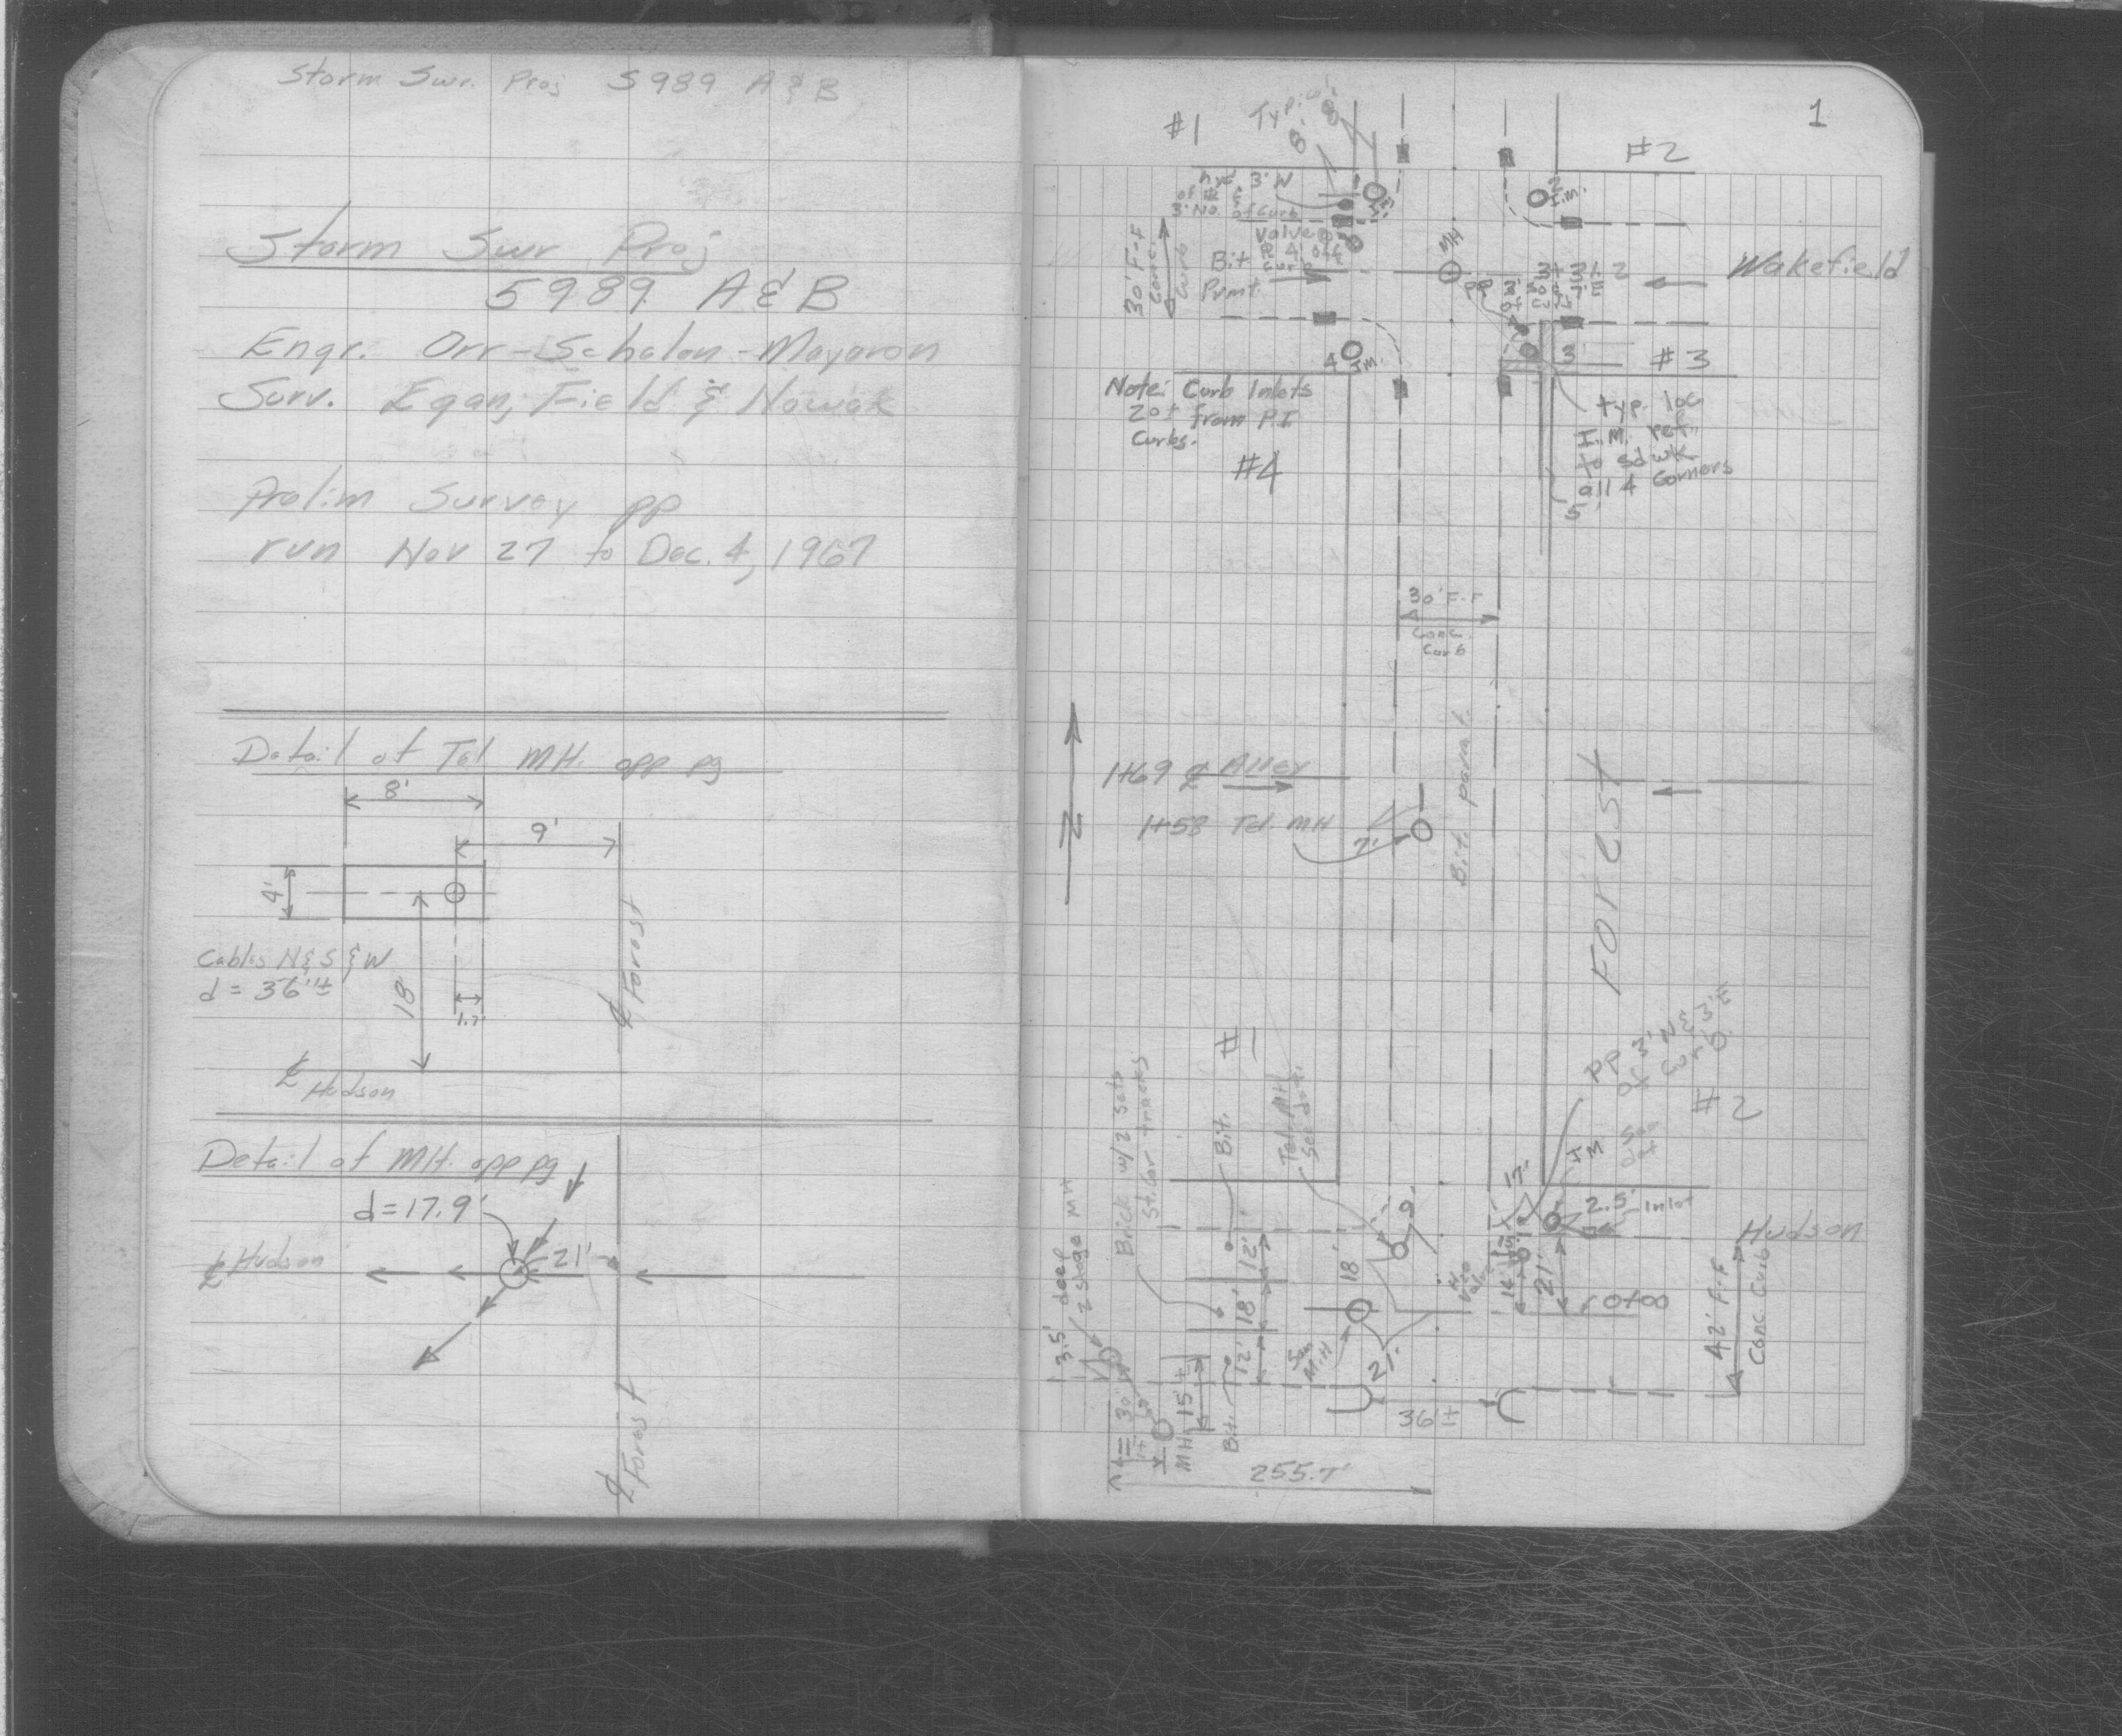 Storm Swr. Proj 5989 A & B
Storm Swr Proj
5989 A & B
Engr. Orr-Schelen-Mayeron
Surv. Egan, Field & Nowak
Prelim Survey pp
run Nov 27 to Dec. 4, 1967
Detail of Tel MH. opp pg
8'
9'
4'
Cables N & S & W
d = 36"±
18'
1.7'
℄ Forest
℄ Hudson
Detail of MH. opp pg
d=17.9'
℄ Hudson
21'
℄ Forest
1
#1
Typ.
8'
8'
#2
hyd 3'W
3' No. of Curb
2
I.M.
Valve
30' F-F
Conc.
Curb
Bit
Pvmt.
MH
3+31.2
Wakefield
PP
4
I.M.
3
#3
Note: Curb Inlets
20± from P.I.
Curbs.
#4
typ. loc
I.M. ref.
to sdwk
all 4 Corners
5'
30' F-F
Conc
Curb
N
1+69 ℄ Alley
1+58 Tel. MH
7'
Bit. pvmt.
Forest
PP 3' N & 3' E
of Curb
#1
#2
Brick w/2 sets
St. Car tracks
Bit.
Tel. MH
See det.
17'
2.5'
Inlet
Hudson
9'
12'
18'
18'
12'
H2O
Valve
14'
21'
0+00
42' F-F
Conc Curb
San
M.H
21'
13.5' deep
2 stage MH
MH
15'±
Bit.
36'±
255.7'